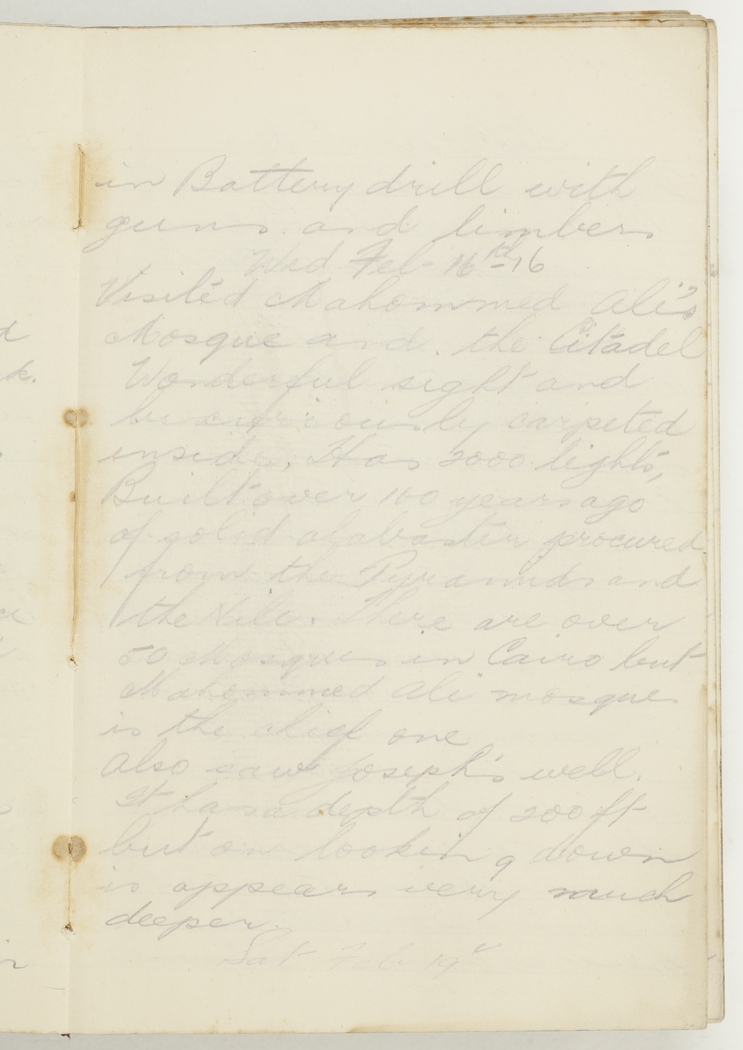 in Battery drill with
guns. and limbers
Wed Feb - 16th - 16
Visited Mahommed Ali's
Mosque and. the Citadel
Wonderful sight and
carpeted
inside. Has 2000 lights,
Built over 100 years ago
of solid alabaster procured
from the Pyramids and
the Nile. There are over
50 Mosques in Cairo but
Mahommed Ali mosque
is the chief one
Also saw Joseph's well.
It has a depth of 200 ft
but on looking down
is appears very much
deeper.
Sat Feb 19